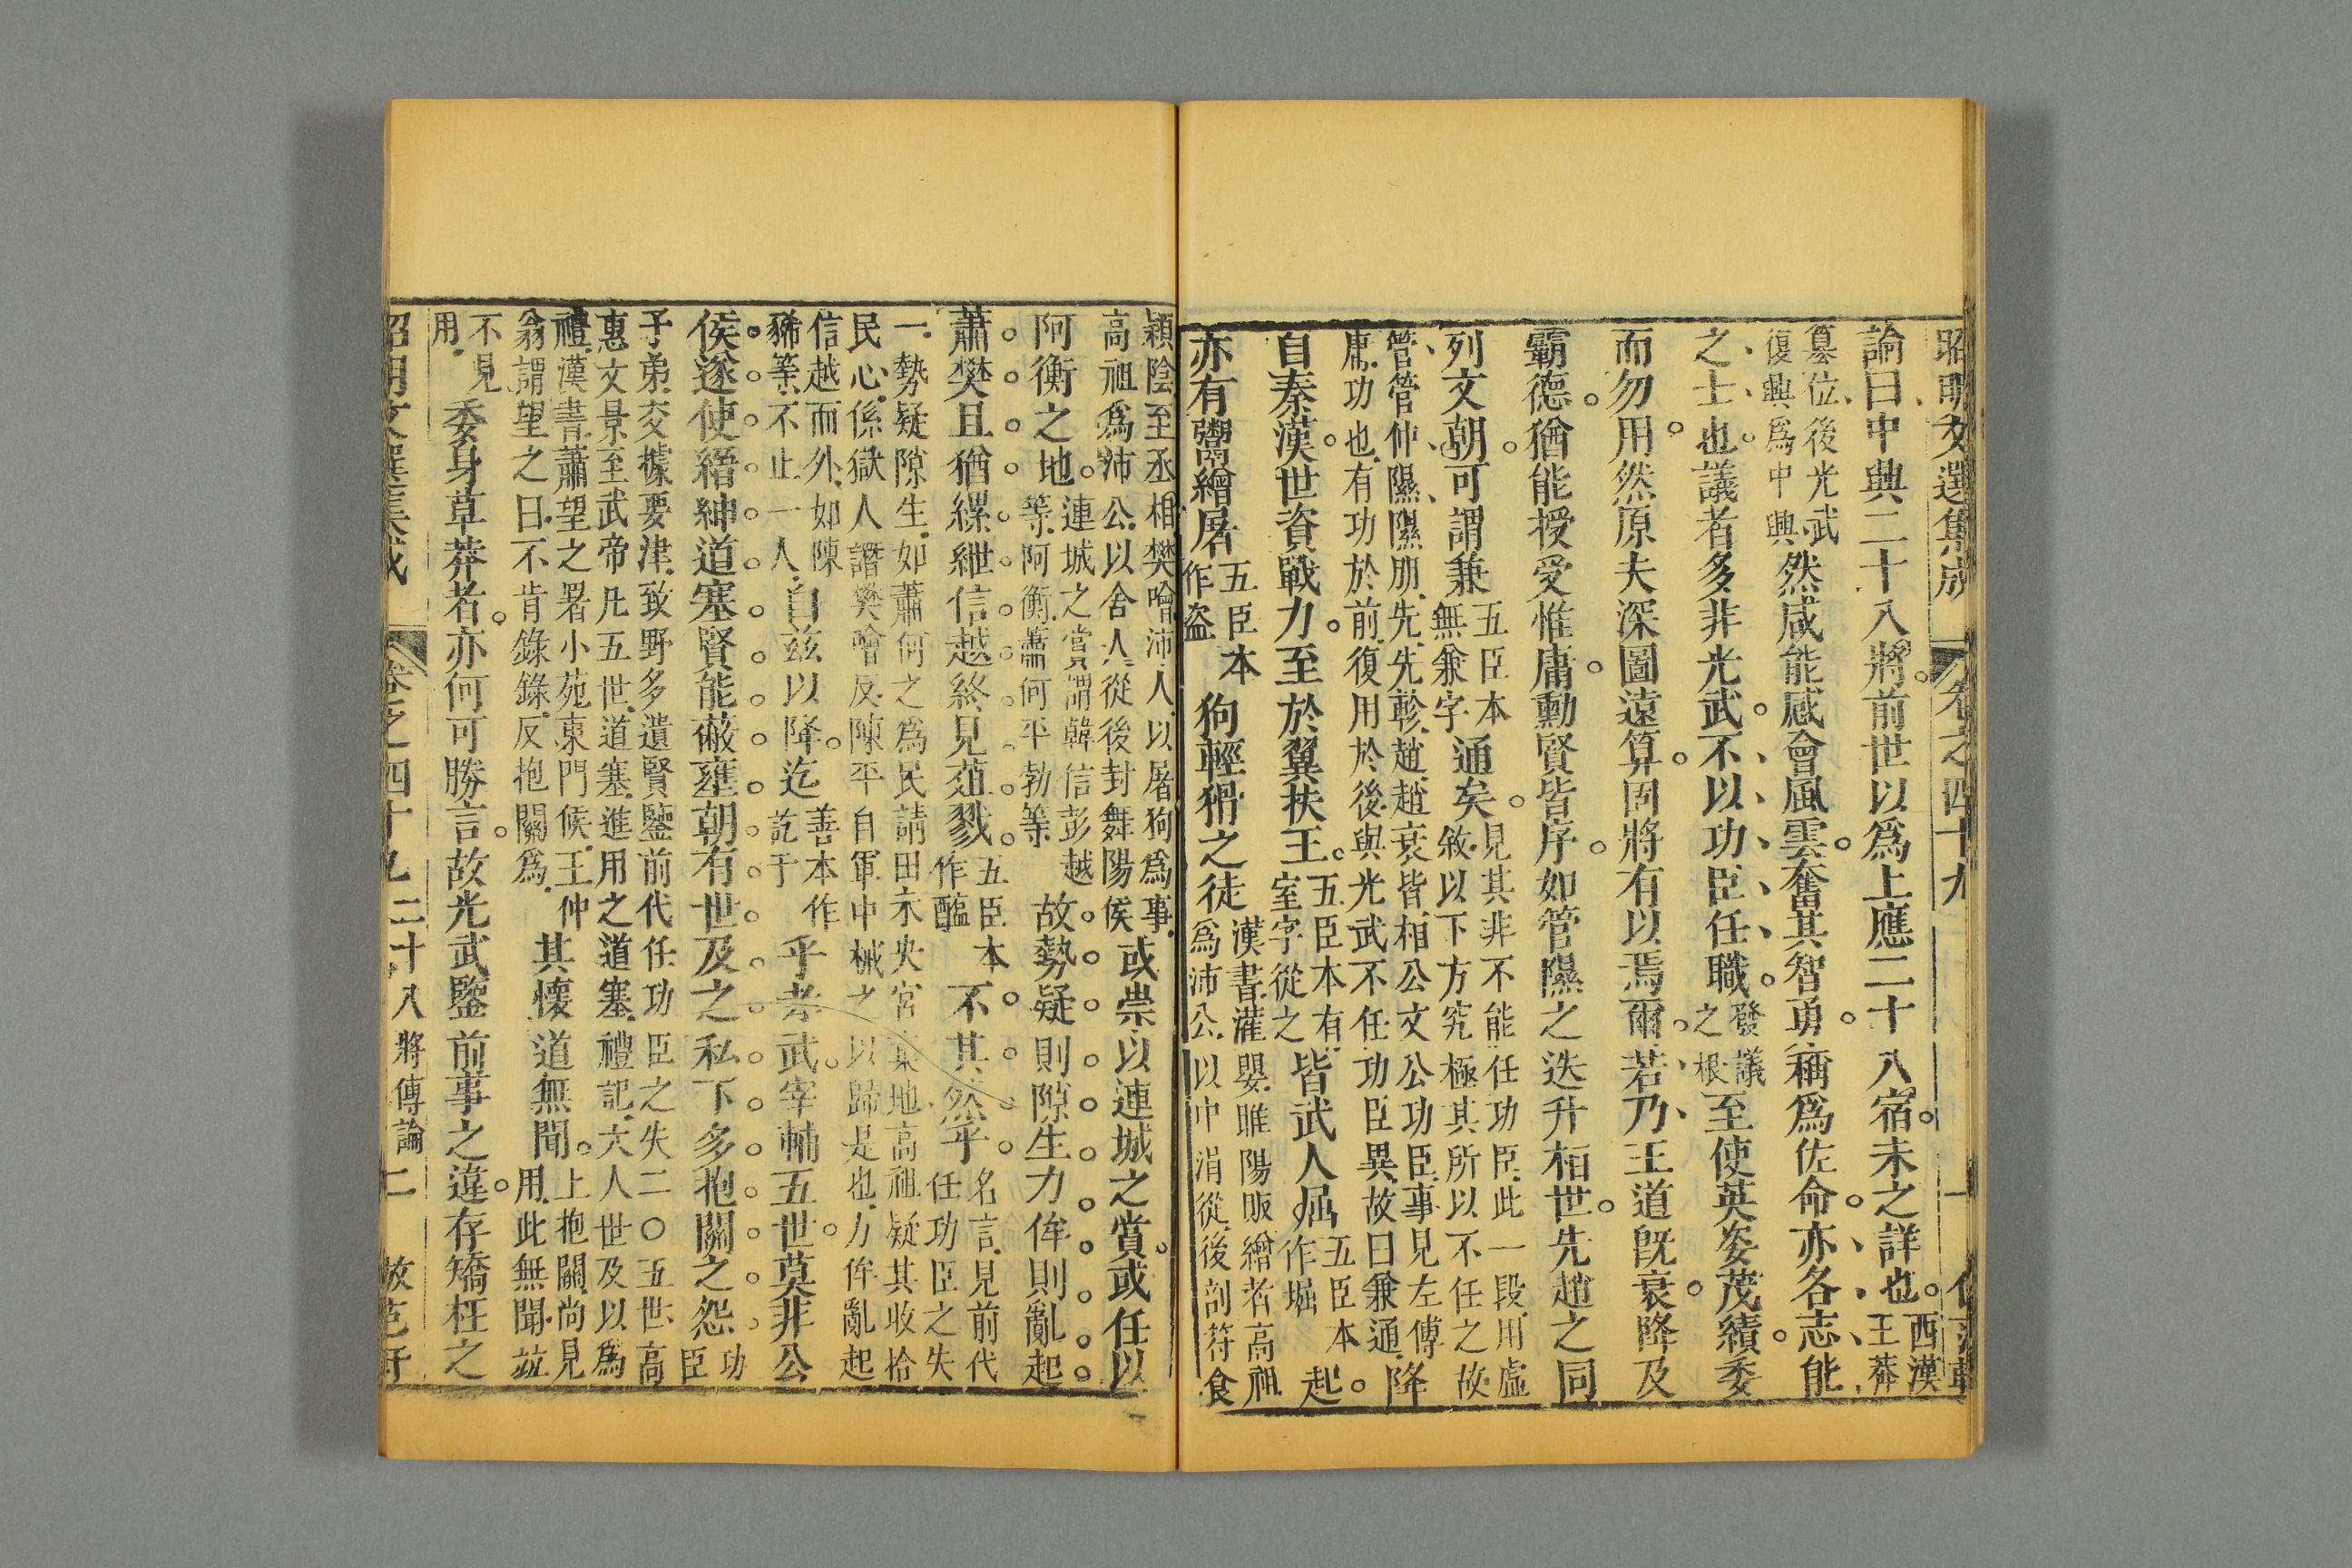 昭明文選集成 卷之四十九
論曰中興二十八將前世以爲上應二十八宿未之詳也西漢王莽
篡位後光武復興爲中興然咸能感會風雲奮其智勇稱爲佐命亦各志能
之士也議者多非光武不以功臣任職發議之根至使英姿茂績委
而勿用然原夫深圖遠算固將有以焉爾若乃王道既衰降及
霸德猶能授受惟庸勳賢皆序如管隰之迭升桓世先趙之同
列文朝可謂兼五臣本無兼字通矣見其非不能任功臣此一段用虛敘以下方究極其所以不任之故
管管仲隰隰朋先先軫趙趙衰皆相公文公功臣事見左傳
庸功也有功於前復用於後與光武不任功臣異故曰兼通降
自秦漢世資戰力至於翼扶王五臣本有室字從之皆武人屈五臣本作堀起
亦有鬻繒屠五臣本作盜狗輕猾之徒漢書灌嬰睢陽販繒者高祖爲沛公以中涓從後剖符食
潁陰至丞相樊噲沛人以屠狗爲事
高祖爲沛公以舍人從後封舞陽侯或崇以連城之賞或任以
阿衡之地連城之賞謂韓信彭越等阿衡蕭何平勃等故勢疑則隙生力侔則亂起
蕭樊且猶縲紲信越終見葅戮五臣本作醢不其然乎名言見前代任功臣之失
一勢疑隙生如蕭何之爲民請田未央宮棄地高祖疑其收拾
民心係獄人譖樊噲反陳平自軍中械之以歸是也力侔亂起
信越而外如陳豨等不止一人自兹以降迄善本作訖于乎孝武宰輔五世莫非公
侯遂使縉紳道塞賢能蔽壅朝有世及之私下多抱關之怨功臣
子弟交據要津致野多遺賢鑒前代任功臣之失二〇五世高
惠文景至武帝凡五世道塞進用之道塞禮記大人世及以爲
禮漢書蕭望之署小苑東門候王仲
翁謂望之曰不肯錄錄反抱關爲其懷道無聞上抱關尚見用此無聞竝
不見用委身草莽者亦何可勝言故光武鑒前事之違存矯枉之
昭明文選集成 卷之四十九 二十八將傳論 二